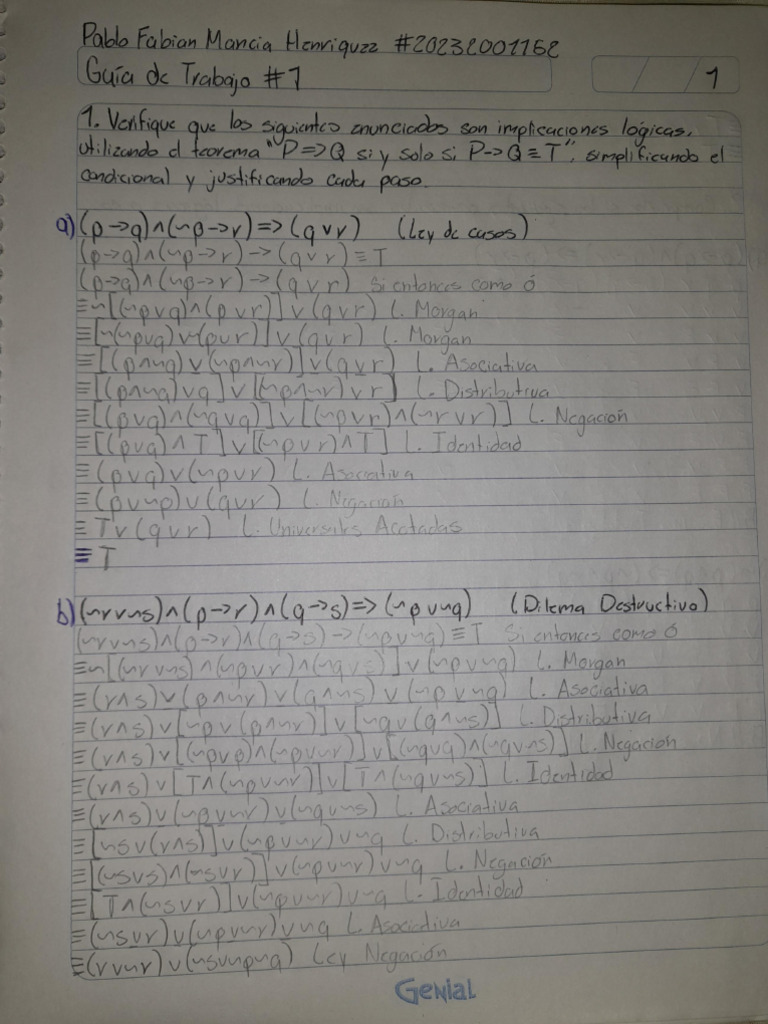 Pablo Fabian Mancia Henriquez #20232001152
Guía de Trabajo #1
/ / 1
1. Verifique que los siguientes enunciados son implicaciones lógicas,
utilizando el teorema "P=>Q si y solo si P->Q≡T", simplificando el
condicional y justificando cada paso.
a) (p->q)∧(¬p->r)=>(q∨r) (Ley de casos)
(p->q)∧(¬p->r)->(q∨r)≡T
(p->q)∧(¬p->r)->(q∨r) Si entonces como ó
≡¬[(¬p∨q)∧(p∨r)]∨(q∨r) L. Morgan
≡[¬(¬p∨q)∨¬(p∨r)]∨(q∨r) L. Morgan
≡[(p∧¬q)∨(¬p∧¬r)]∨(q∨r) L. Asociativa
≡[(p∧¬q)∨q]∨[(¬p∧¬r)∨r] L. Distributiva
≡[(p∨q)∧(¬q∨q)]∨[(¬p∨r)∧(¬r∨r)] L. Negación
≡[(p∨q)∧T]∨[(¬p∨r)∧T] L. Identidad
≡(p∨q)∨(¬p∨r) L. Asociativa
≡(p∨¬p)∨(q∨r) L. Negación
≡T∨(q∨r) L. Universales Acotadas
≡T
b) (¬r∨¬s)∧(p->r)∧(q->s)=>(¬p∨¬q) (Dilema Destructivo)
(¬r∨¬s)∧(p->r)∧(q->s)->(¬p∨¬q)≡T Si entonces como ó
≡¬[(¬r∨¬s)∧(¬p∨r)∧(¬q∨s)]∨(¬p∨¬q) L. Morgan
≡(r∧s)∨(p∧¬r)∨(q∧¬s)∨(¬p∨¬q) L. Asociativa
≡(r∧s)∨[¬p∨(p∧¬r)]∨[¬q∨(q∧¬s)] L. Distributiva
≡(r∧s)∨[(¬p∨p)∧(¬p∨¬r)]∨[(¬q∨q)∧(¬q∨¬s)] L. Negación
≡(r∧s)∨[T∧(¬p∨¬r)]∨[T∧(¬q∨¬s)] L. Identidad
≡(r∧s)∨(¬p∨¬r)∨(¬q∨¬s) L. Asociativa
≡[¬s∨(r∧s)]∨(¬p∨¬r)∨¬q L. Distributiva
≡[(¬s∨s)∧(¬s∨r)]∨(¬p∨¬r)∨¬q L. Negación
≡[T∧(¬s∨r)]∨(¬p∨¬r)∨¬q L. Identidad
≡(¬s∨r)∨(¬p∨¬r)∨¬q L. Asociativa
≡(r∨¬r)∨(¬s∨¬p∨¬q) Ley Negación
GENIAL